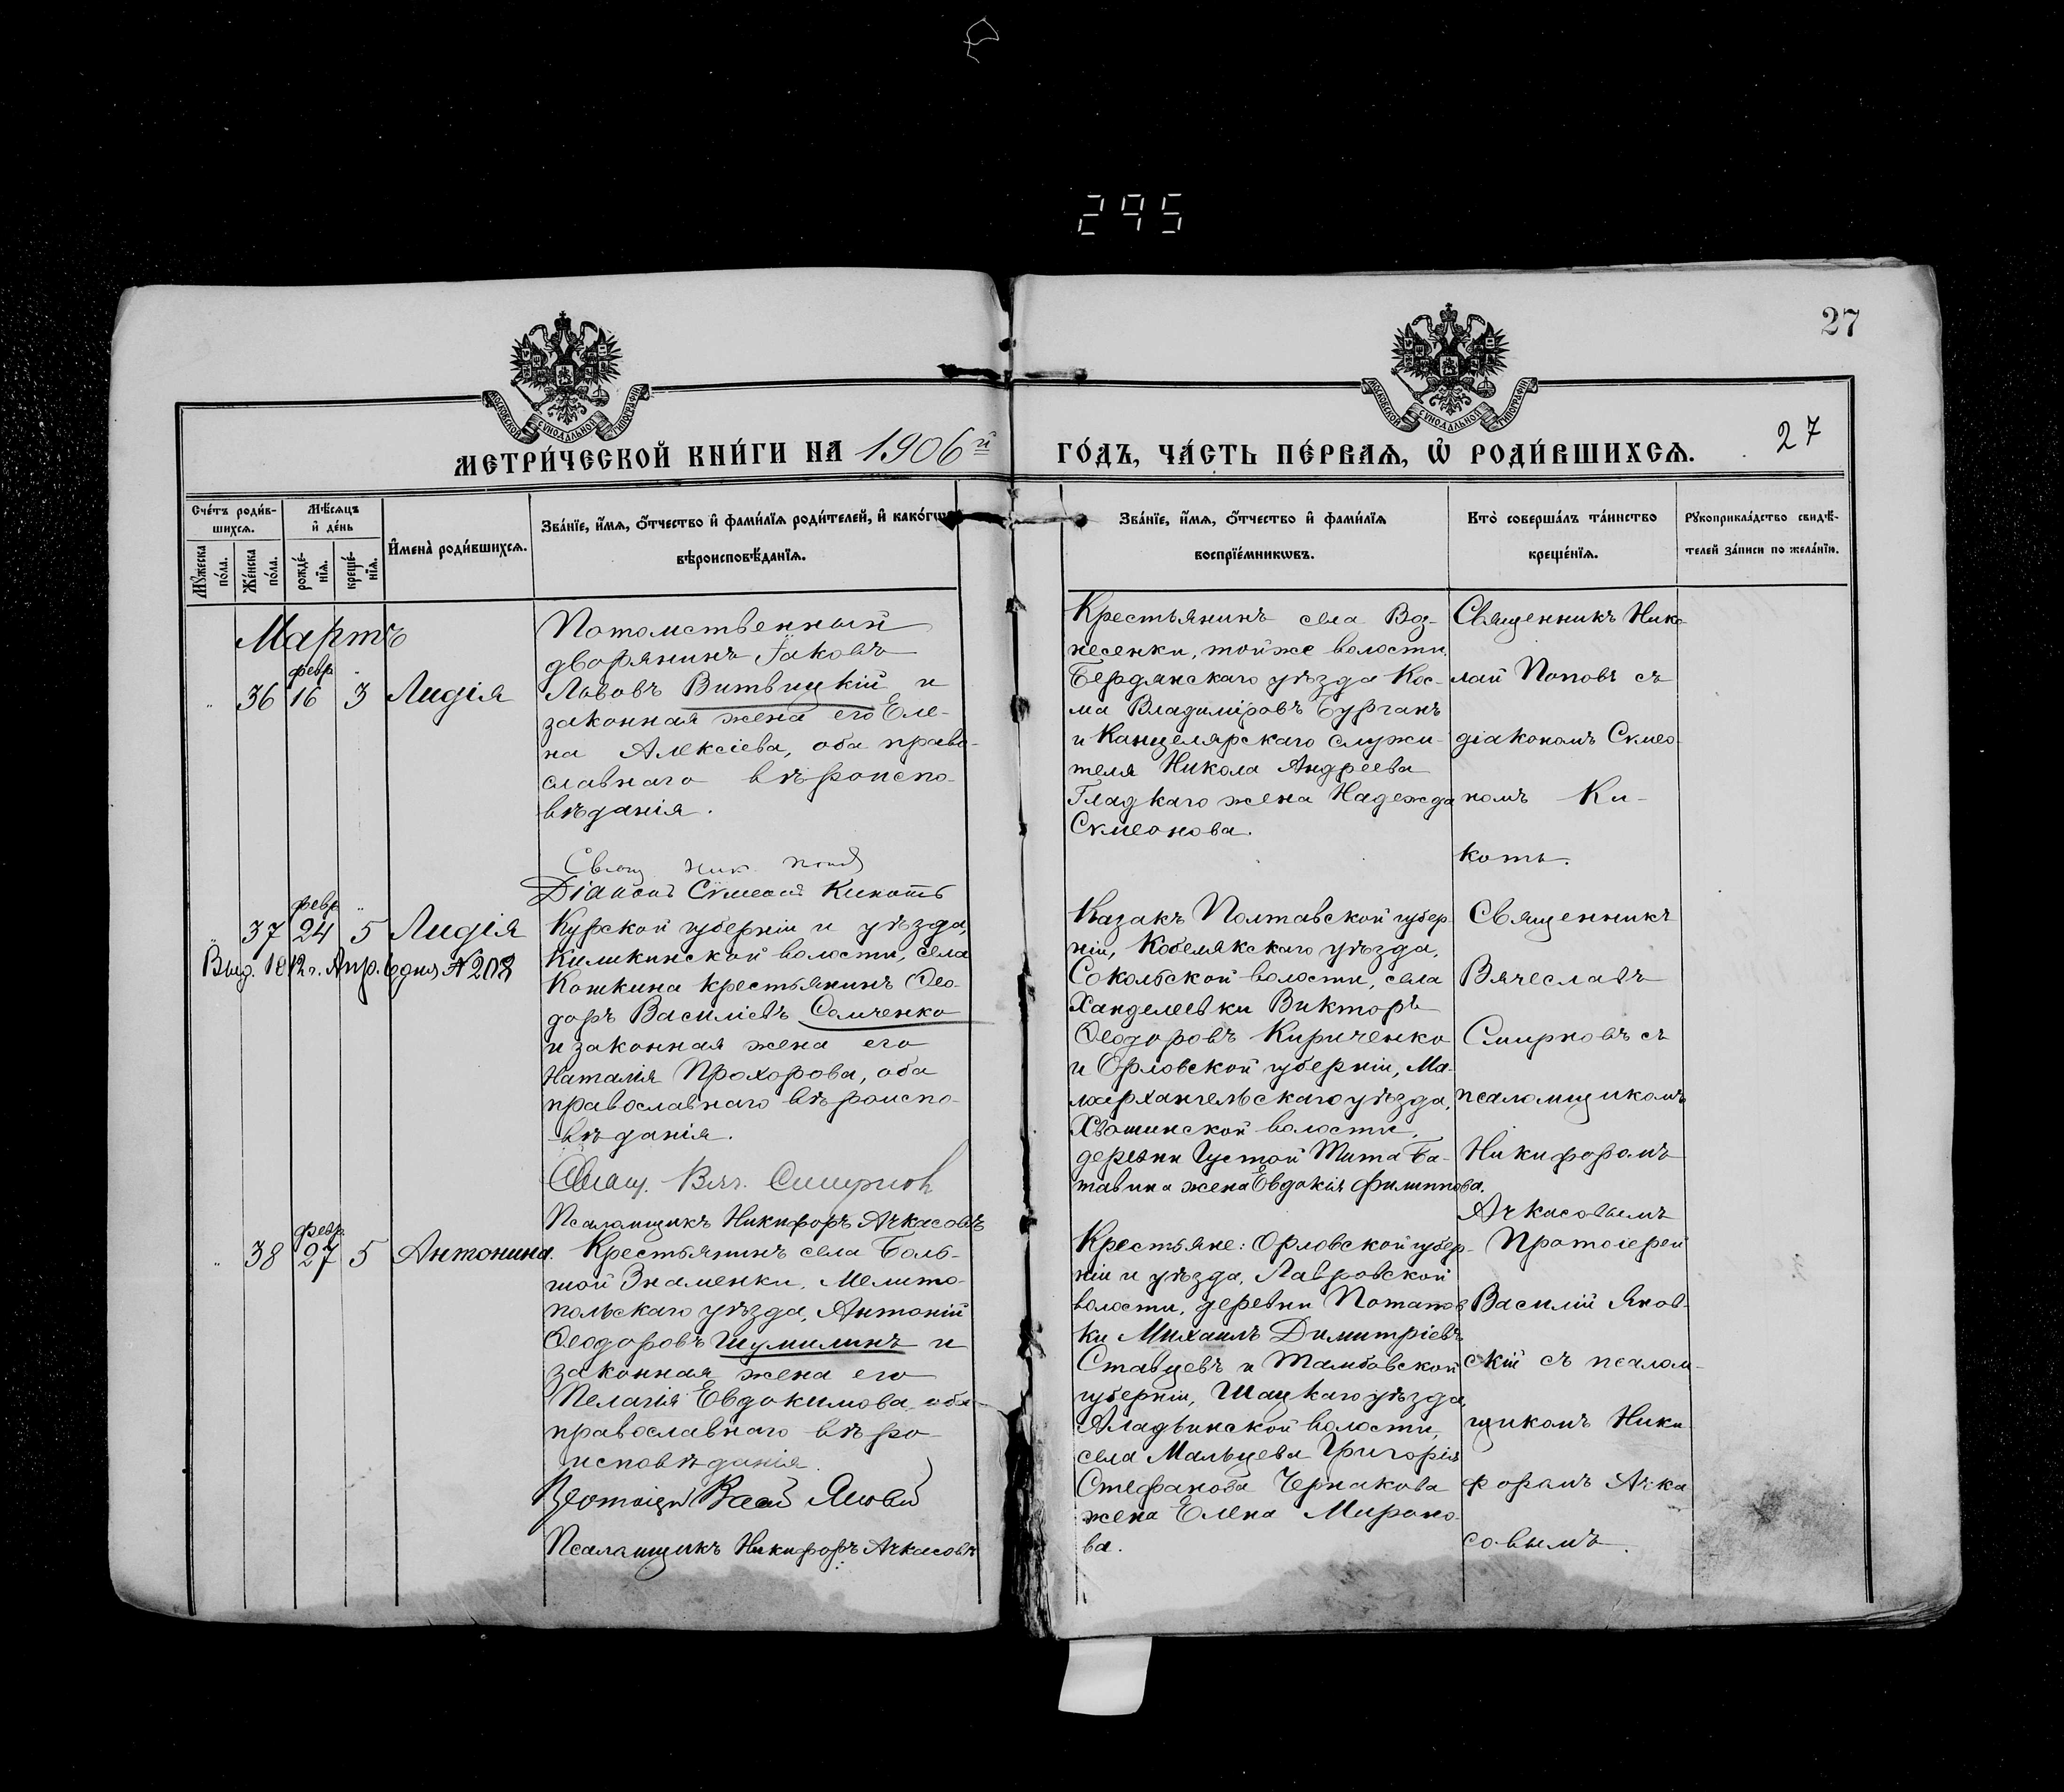 295
27
27
МОСКОВСКОЙ СУНОДАЛЬНОЙ ТИПОГРАФІИ
МОСКОВСКОЙ СУНОДАЛЬНОЙ ТИПОГРАФІИ
МЕТРИ́ЧЕСКОЙ КНИ́ГИ НА 1906й
ГО́ДЪ, ЧА́СТЬ ПЕ́РВАѦ, Ѡ РОДИ́ВШИХСѦ.
Сче́тъ роди́в-
шихсѧ.
Мꙋ́жеска
по́ла.
Же́нска
по́ла.
Мѣ́сѧцъ
и҆ де́нь
рожде́-
нїѧ.
креще́-
нїѧ.
И҆мена̀ роди́вшихсѧ.
Зва́нїе, и҆́мѧ, о҆́тчество и҆ фами́лїѧ роди́телей, и҆ како́гѡ
вѣроисповѣ́данїѧ.
Зва́нїе, и҆́мѧ, о҆́тчество и҆ фами́лїѧ
воспрїе́мникѡвъ.
Кто̀ соверша́лъ та́инство
креще́нїѧ.
Рꙋкоприкла́дство свидѣ́-
телей за́писи по жела́нїю.
Мартъ
февр
36 16 3 Лидія
Потомственный
дворянинъ Іаковъ
Львовъ Витвицкій и
законная жена его Еле-
на Алексіева, оба право-
славнаго вѣроиспо-
вѣданія.
Свящ. Ник. Попов
Діаконъ Сѵмеонъ Кикоть
Крестьянинъ села Воз-
несенки, тойже волости,
Бердянскаго уѣзда Кос-
ма Владиміровъ Бурганъ
и Канцелярскаго служи-
теля Никола Андреева
Гладкаго жена Надежда
Сѵмеонова.
Священникъ Нико
лай Поповъ съ
діакономъ Сѵмео-
номъ Ки-
коть.
февр
37 24 5 Лидія
Выд. 1912 г. Апр. 6 дня № 208
Курской губерніи и уѣзда,
волости, села
Кошкина крестьянинъ Ѳео-
доръ Василіевъ Сомченко
и законная жена его
Наталія Прохорова, оба
православнаго вѣроиспо-
вѣданія.
Свящ. Вяч. Смирнов
Псаломщикъ Никифоръ Ачкасовъ
Казакъ Полтавской губер-
ніи, Кобелякскаго уѣзда,
Сокольской волости, села
Ханделеевки Викторъ
Ѳеодоровъ Кириченко
и Орловской губерніи, Ма-
лоархангельскаго уѣзда,
волости,
деревни Густой Тита Ба-
тавина жена Евдокія Филиппова.
Священникъ
Вячеславъ
Смирновъ съ
псаломщикомъ
Никифоромъ
Ачкасовымъ
февр
38 27 5 Антонина.
Крестьянинъ села Боль-
шой Знаменки, Мелито-
польскаго уѣзда, Антоній
Ѳеодоровъ Шумилинъ и
законная жена его
Пелагія Евдокимова, оба
православнаго вѣро-
исповѣданія.
Протоіерей Васил Яновс
Псаломщикъ Никифоръ Ачкасовъ
Крестьяне: Орловской губер-
ніи и уѣзда, Лавровской
волости, деревни Потапов
ки Михаилъ Димитріевъ
Ставцевъ и Тамбовской
губерніи, Шацкаго уѣзда
Аладьинской волости,
села Мальцева Григорія
Стефанова Чернакова
жена Елена Мироно-
ва.
Протоіерей
Василій Янов-
скій съ псалом-
щикомъ Ники
форомъ Ачка
совымъ.